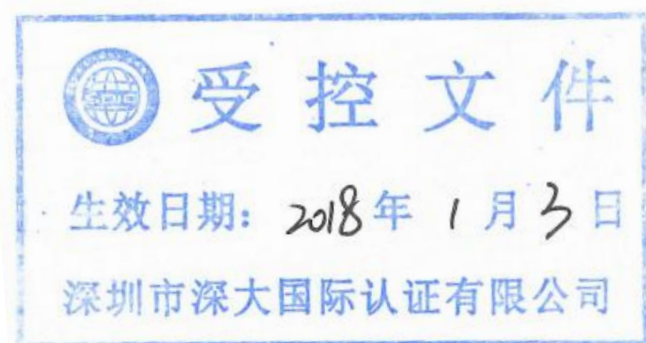 受控文件
生效日期：2018年1月3日
深圳市深大国际认证有限公司